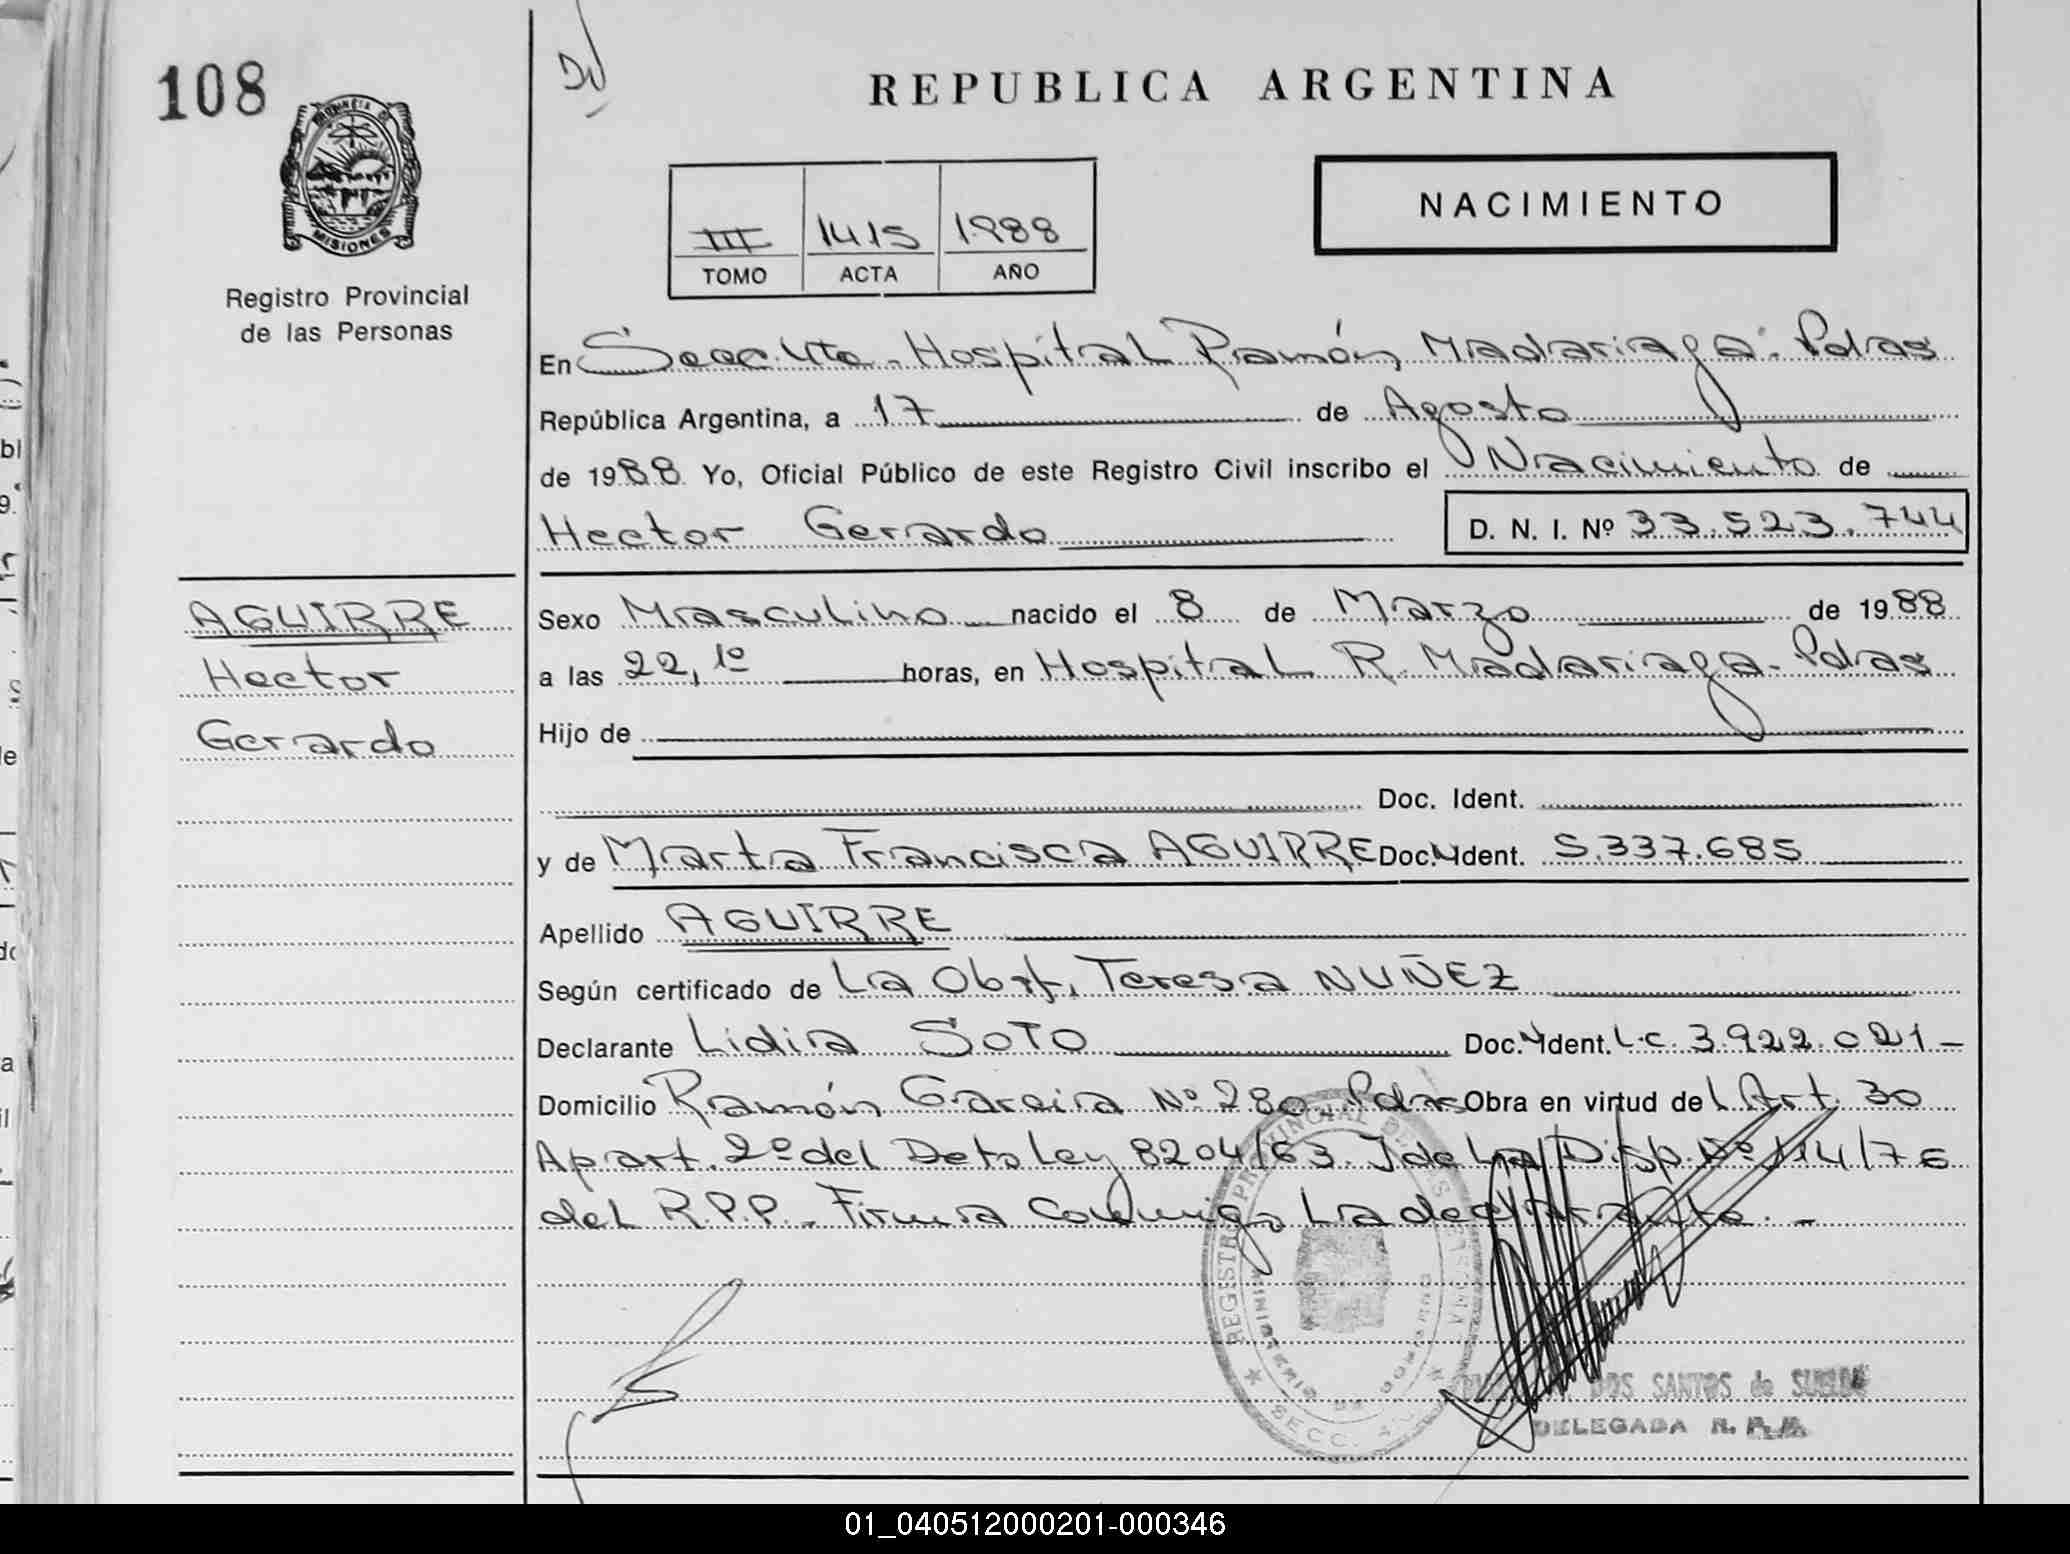 108
PROVINCIA D
MISIONES
Registro Provincial
de las Personas
REPUBLICA ARGENTINA
III 1415 1988
TOMO ACTA AÑO
NACIMIENTO
En Secc. 4ta - Hospital Ramón Madariaga - Pdas
República Argentina, a 17 de Agosto
de 1988 Yo, Oficial Público de este Registro Civil inscribo el Nacimiento de
Hector Gerardo D. N. I. Nº 33.523.744
AGUIRRE
Hector
Gerardo
Sexo Masculino nacido el 8 de Marzo de 1988
a las 22,1º horas, en Hospital R. Madariaga - Pdas
Hijo de
Doc. Ident.
y de Marta Francisca AGUIRRE Doc. Ident. 5.337.685
Apellido AGUIRRE
Según certificado de La Obst. Teresa NUÑEZ
Declarante Lidia SOTO Doc. Ident. L.C. 3.922.021 -
Domicilio Ramón Garcia Nº 280 - Pdas Obra en virtud del Art. 30
Apart. 2º del Deto Ley 8204/63. I de La Disp. Nº 114/76
del R.P.P. - Firma Conmigo La declarante. -
REGISTRO PROVINCIAL DE LAS PERSONAS
MINISTERIO DE GOBIERNO
SECC.
DOS SANTOS de
DELEGADA R. P. P.
01_040512000201-000346